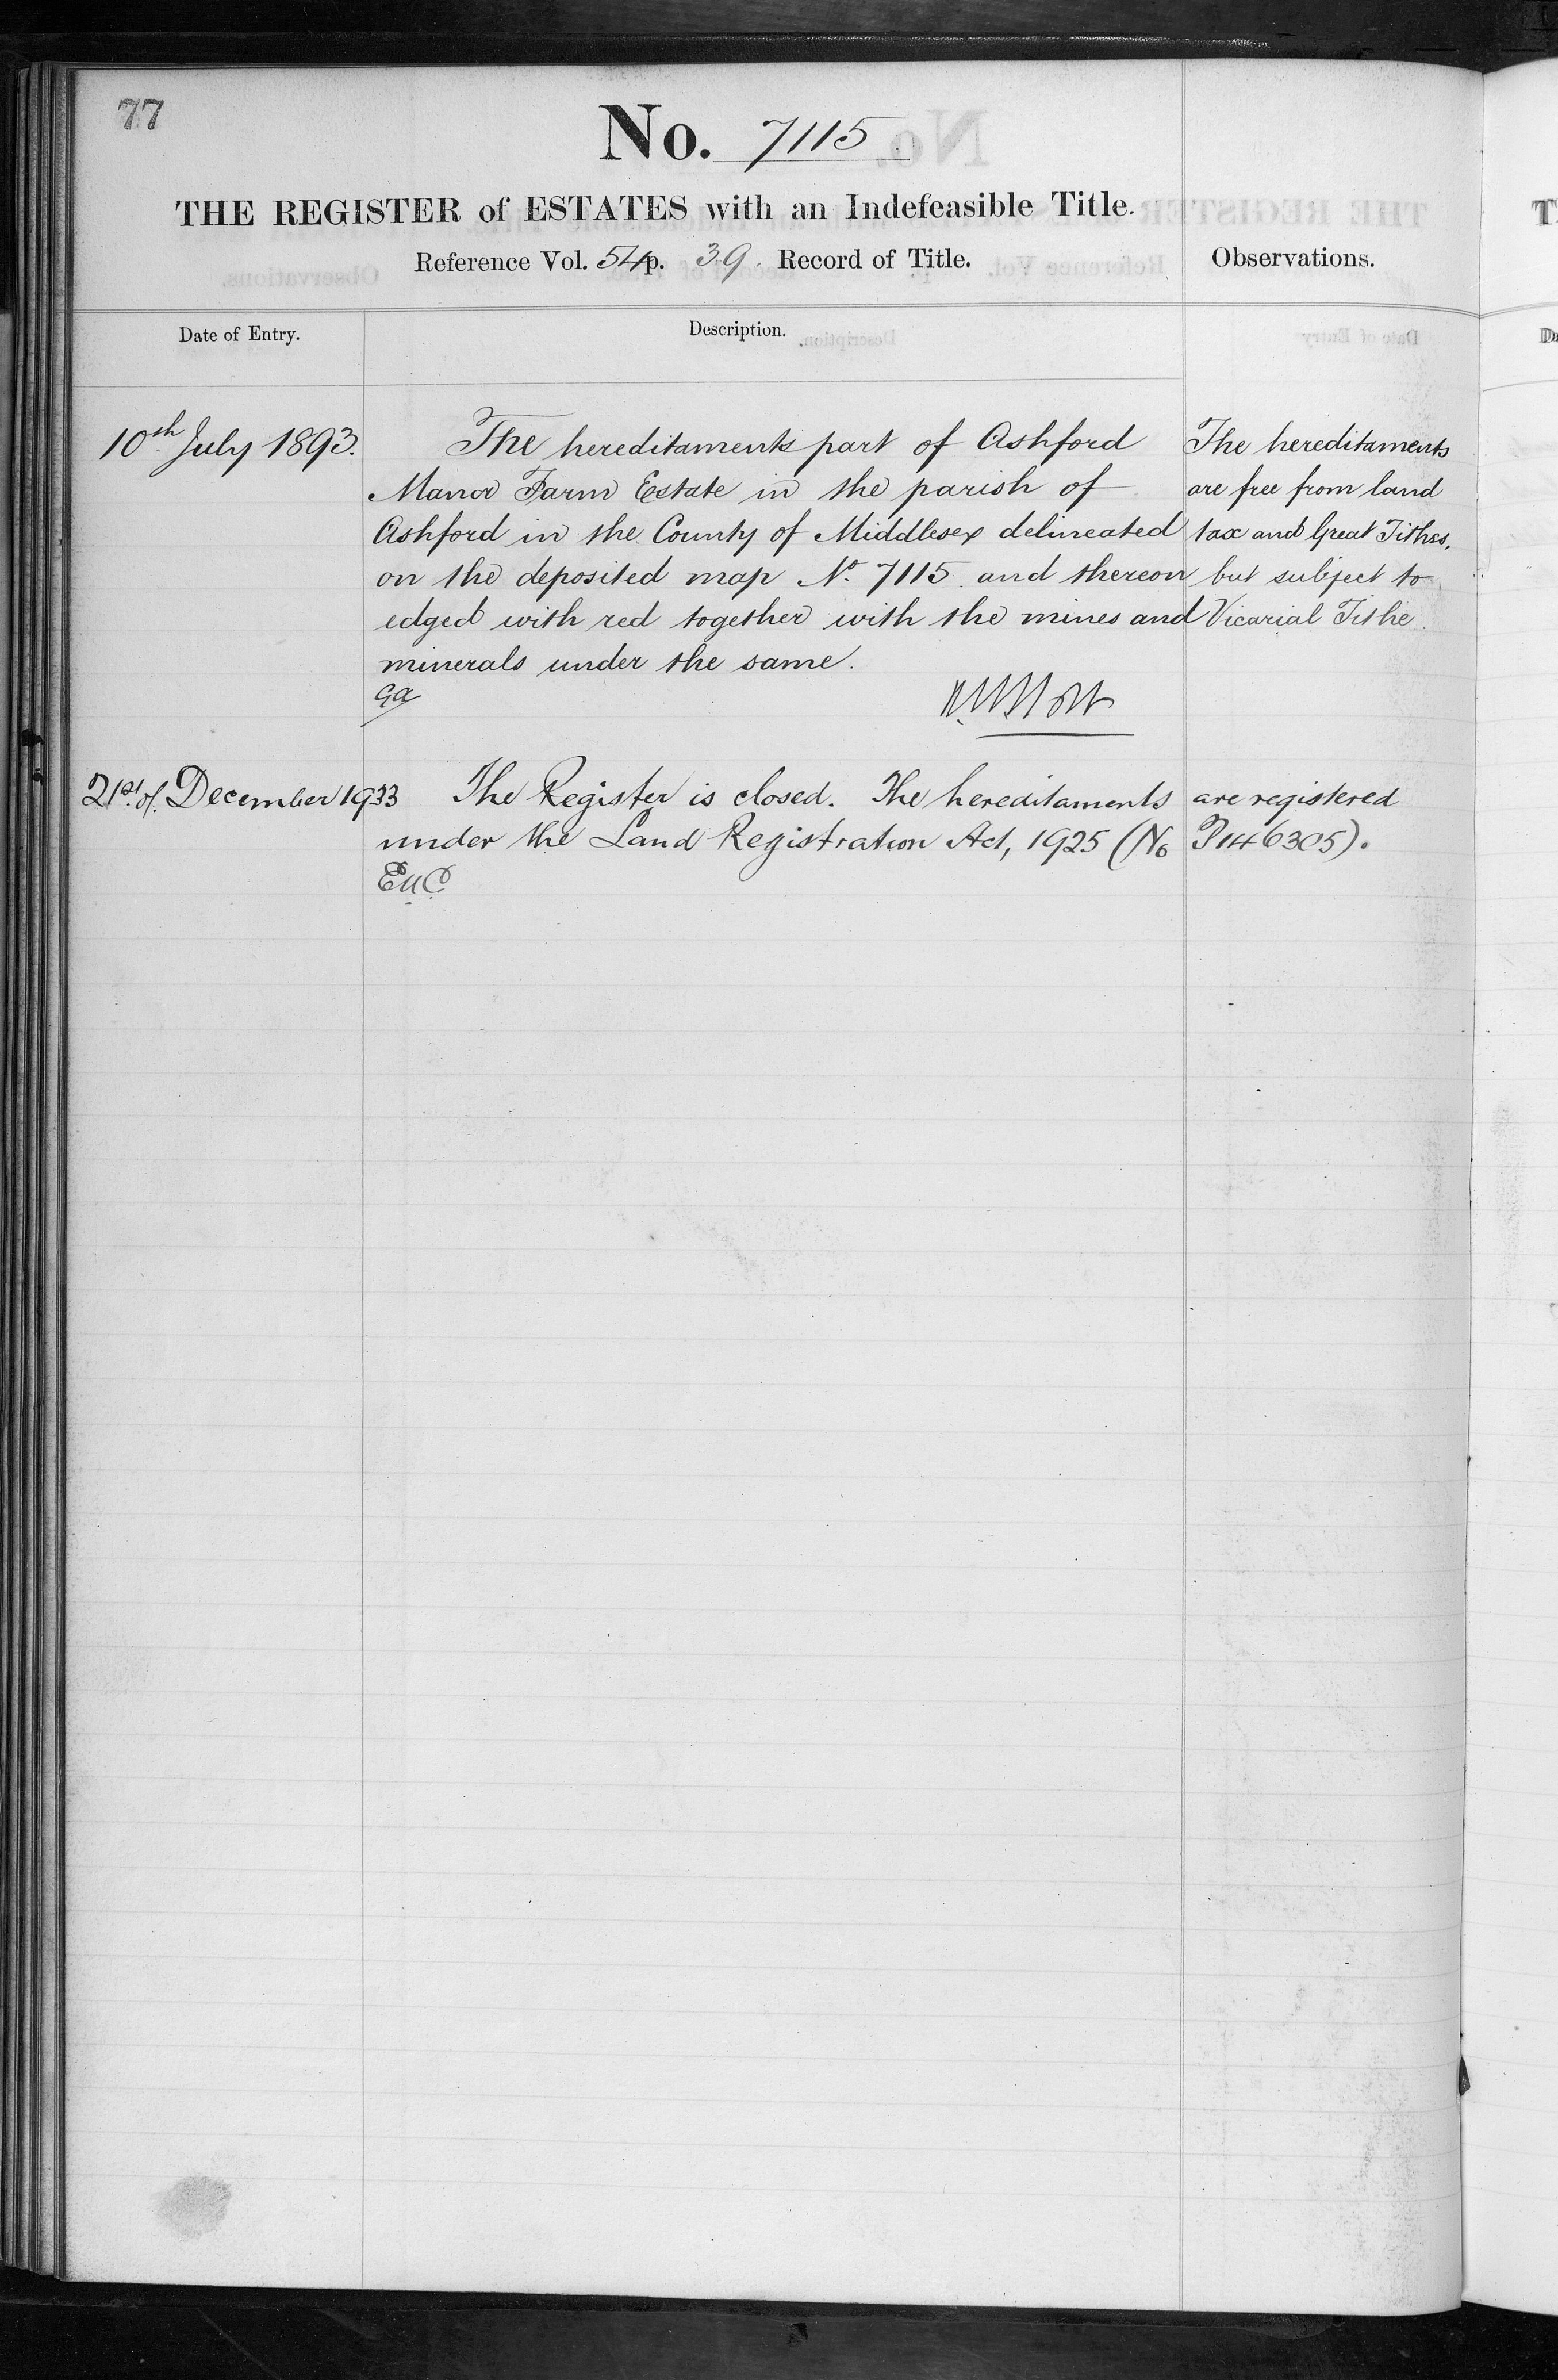 77
No. 7115
THE REGISTER of ESTATES with an Indefeasible Title.
Reference Vol. 54 p. 39. Record of Title.
Observations.
Date of Entry.
Description.
10th July 1893.
The hereditaments part of Ashford
Manor Farm Estate in the parish of
Ashford in the County of Middlesex delineated
on the deposited map No. 7115 and thereon
edged with red together with the mines and
minerals under the same.
GA
The hereditaments
are free from land
tax and Great Tithes,
but subject to
Vicarial Tithe.
21st of December 1933
The Register is closed. The hereditaments are registered
under the Land Registration Act, 1925 (No P146305).